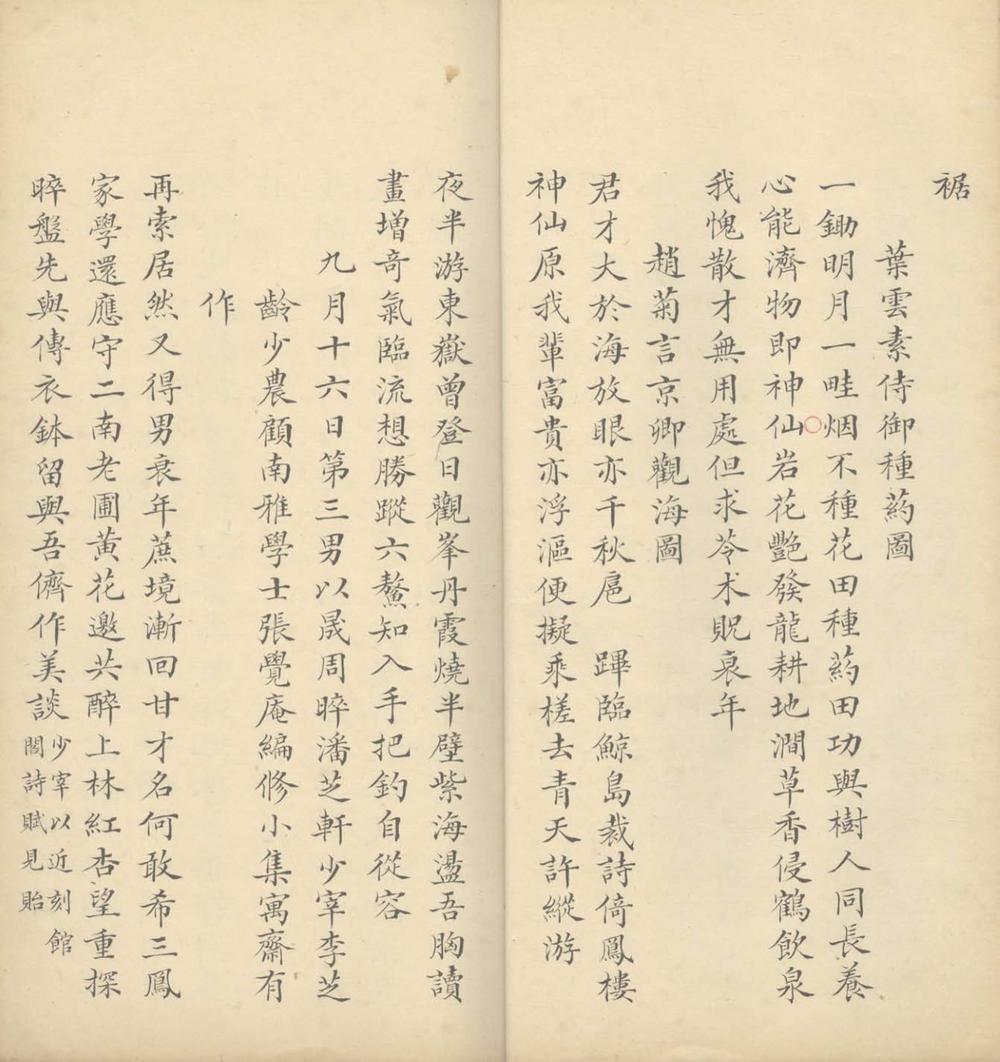 裾
葉雲素侍御種葯圖
一鋤明月一畦烟不種花田種葯田功與樹人同長養
心能濟物即神仙岩花艷發龍耕地澗草香侵鶴飲泉
我愧散才無用處但求苓术貺衰年
趙菊言京卿觀海圖
君才大於海放眼亦千秋扈蹕臨鯨島裁詩倚鳳樓
神仙原我輩富貴亦浮漚便擬乘槎去青天許縱游
夜半游東嶽曾登日觀峯丹霞燒半壁紫海盪吾胸讀
畫增奇氣臨流想勝蹤六鰲知入手把釣自從容
九月十六日第三男以晟周晬潘芝軒少宰李芝
齡少農顧南雅學士張覺庵編修小集寓齋有
作
再索居然又得男衰年蔗境漸回甘才名何敢希三鳳
家學還應守二南老圃黃花邀共醉上林紅杏望重探
晬盤先與傳衣鉢留與吾儕作美談
少宰以近刻館
閣詩賦見貽